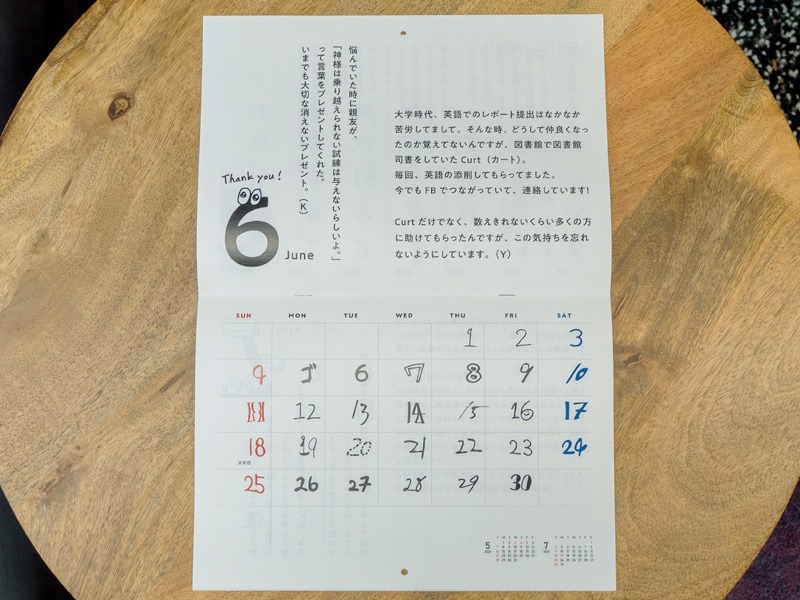 悩んでいた時に親友が、
「神様は乗り越えられない試練は与えないらしいよ。」
って言葉をプレゼントしてくれた。
いまでも大切な消えないプレゼント。（K）
Thank you!
6
June
大学時代、英語でのレポート提出はなかなか
苦労してまして。そんな時、どうして仲良くなっ
たのか覚えてないんですが、図書館で図書館
司書をしていた Curt（カート）。
毎回、英語の添削してもらってました。
今でも FB でつながっていて、連絡しています!
Curt だけでなく、数えきれないくらい多くの方
に助けてもらったんですが、この気持ちを忘れ
ないようにしています。（Y）
SUN MON TUE WED THU FRI SAT
1 2 3
4 5 6 7 8 9 10
11 12 13 14 15 16 17
18 19 20 21 22 23 24
父の日
25 26 27 28 29 30
5 7